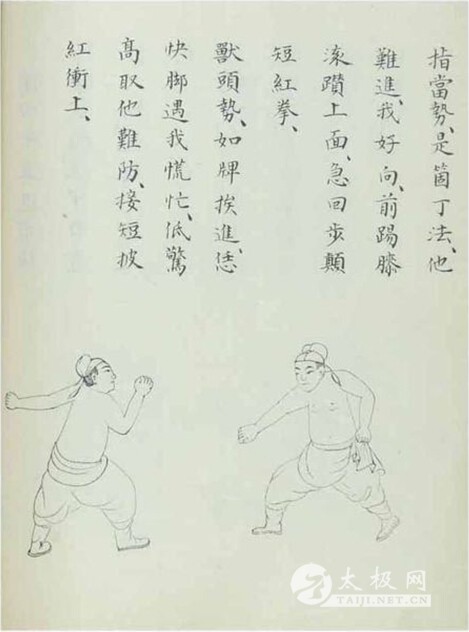 指當勢、是箇丁法、他
難進、我好向、前踢膝
滚躦上面、急回步顛
短紅拳、
獸頭勢、如牌挨進、恁
快脚遇我慌忙、低驚
高取他難防、接短披
紅衝上、
太极网
TAIJI.NET.CN